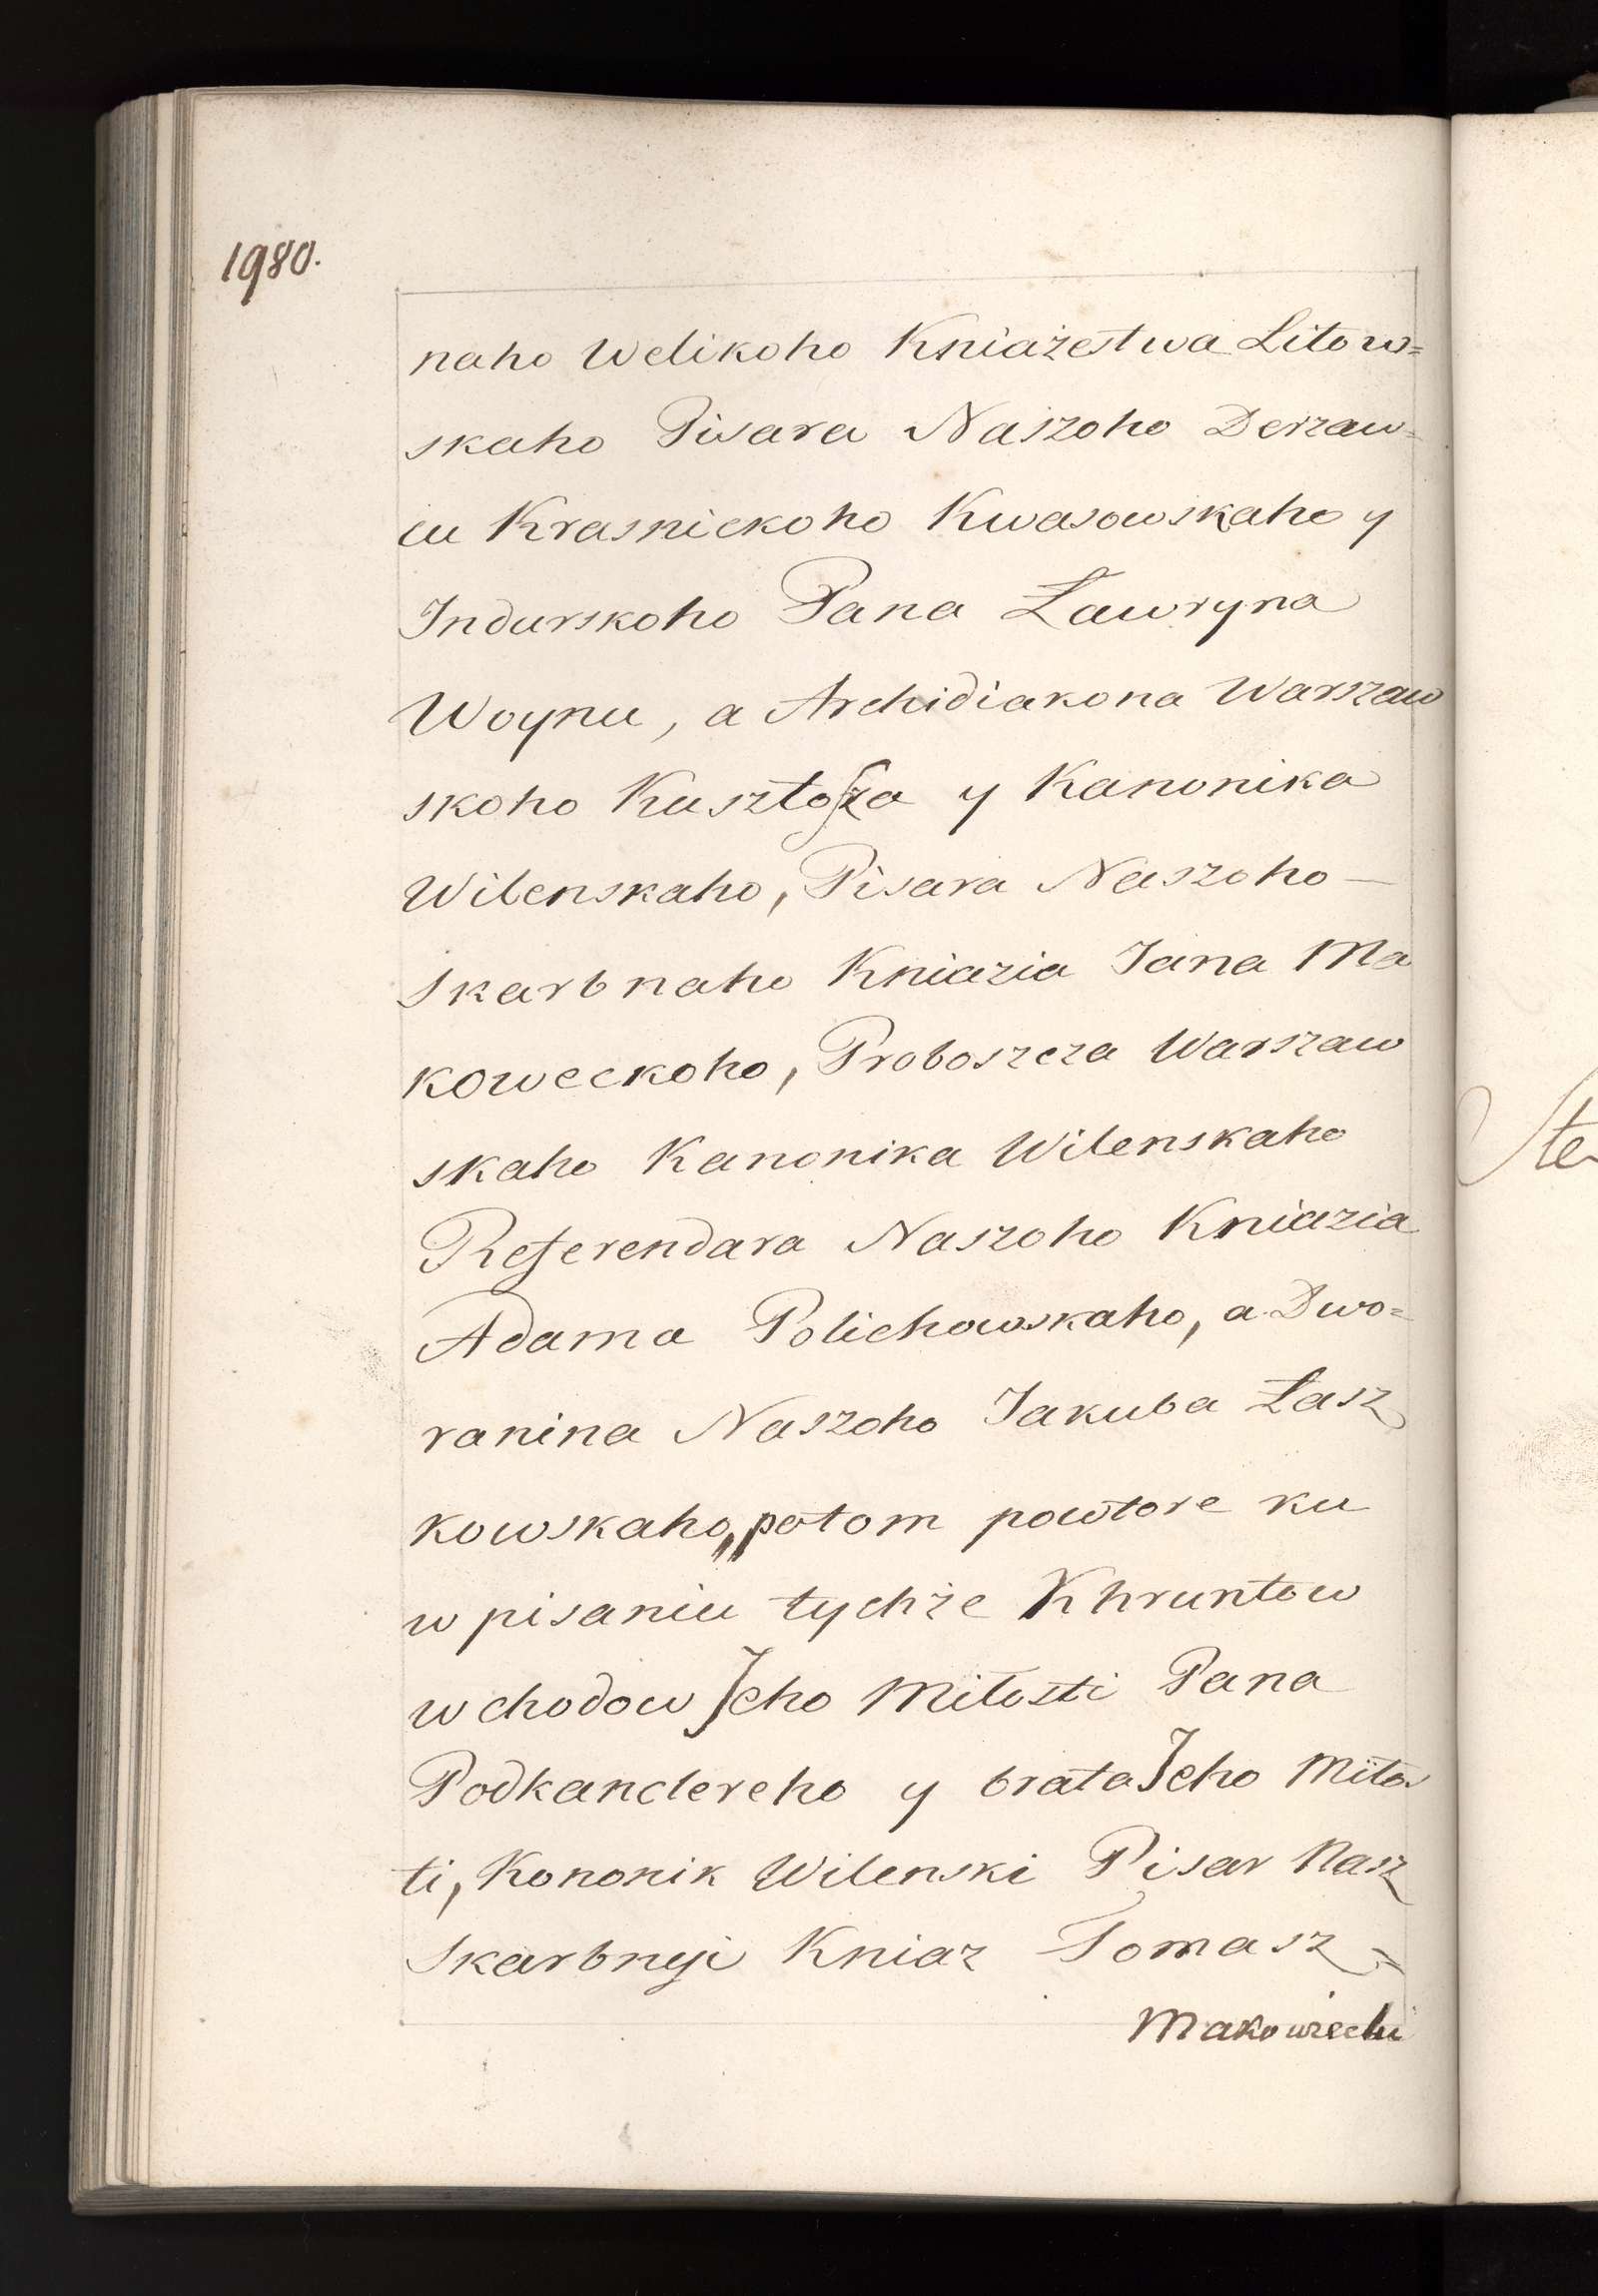 1980.
naho Welikoho Kniażestwa Litow=
skaho Pisara Naszoho Derżaw=
cu Krasnickoho Kwasowskaho y
Indurskoho Pana Ławryna
Woynu, a Archidiakona Warszaw
skoho Kusztosza y Kanonika
Wilenskaho, Pisara Naszoho —
Skarbnaho Kniazia Jana Ma
koweckoho, Proboszcza Warszaw
skaho Kanonika Wilenskaho
Referendara Naszoho Kniazia
Adama Polichowskaho, a Dwo=
ranina Naszoho Jakuba Łasz
kowskaho,, potom powtore ku
wpisaniu tychże Khruntow
wchodow Jeho Miłosti Pana
Podkanclereho y brata Jeho Miłos
ti, Kononik Wilenski Pisar Nasz
Skarbnyi Kniaz Tomasz =
Makowiecki
Ste